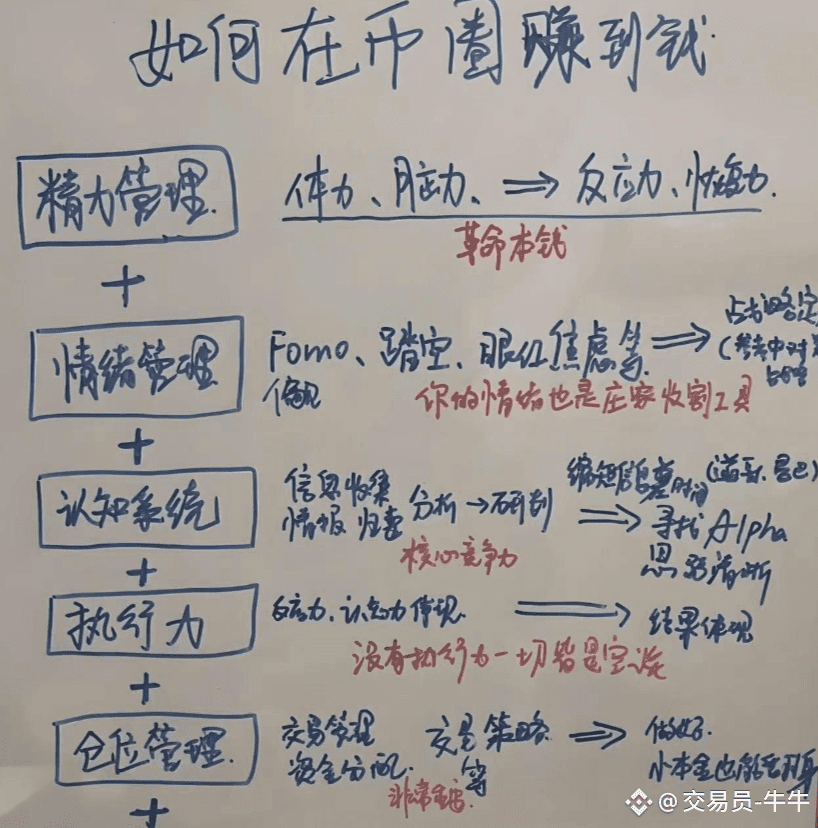 如何在币圈赚到钱
精力管理. 体力、脑力、⇒ 反应力、恢复力.
革命本钱
+
情绪管理 Fomo、踏空、眼红焦虑等 ⇒
偏见
(参考中对
你的情绪也是庄家收割工具
+
认知系统 信息收集 分析→研判 ⇒ 寻找Alpha
情报归集
缩短信息差时间
思路清晰
核心竞争力
+
执行力 反应力、认知力体现. ⇒ 结果体现
没有执行力一切皆是空谈
+
仓位管理. 交易管理 交易策略 ⇒ 做好.
资金分配. 等 小本金也能翻身
非常重要.
+
@交易员-牛牛